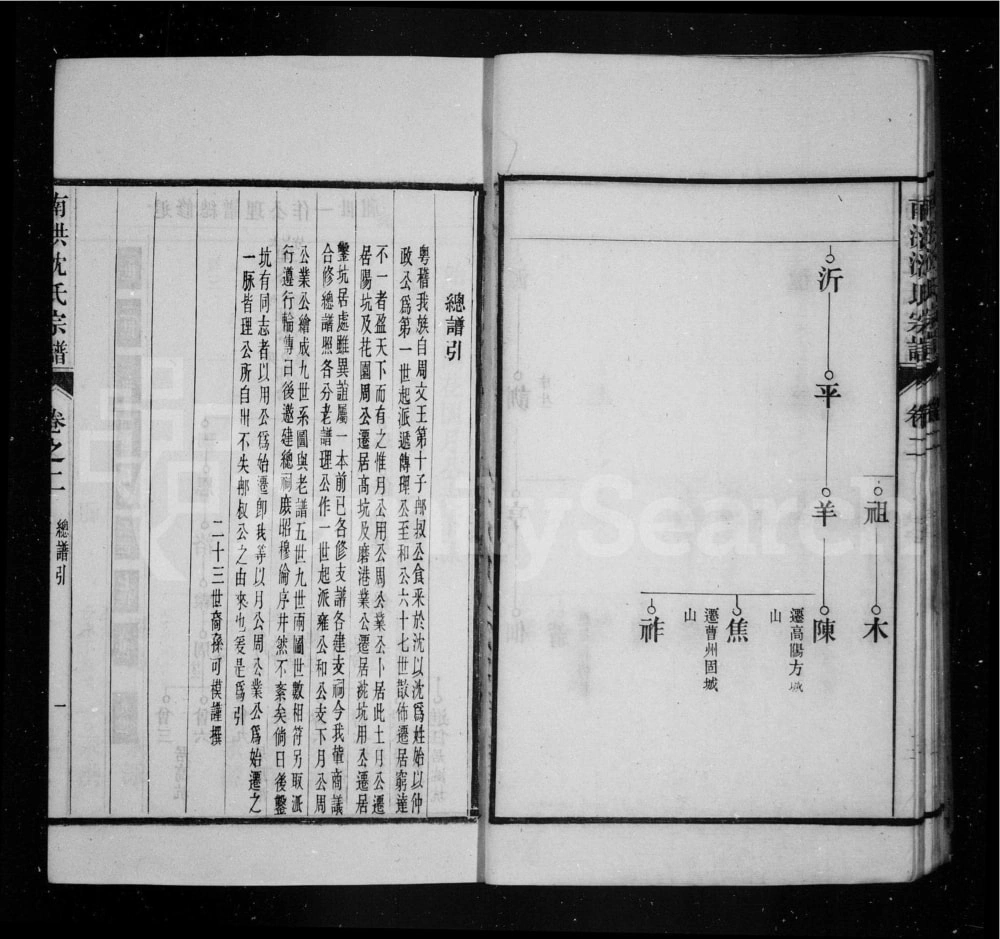 沂
平
羊
祖
陳
遷高陽方城
山
焦
遷曹州固城
山
祚
木
卷二
總譜引
粵稽我族自周文王第十子𨈭叔公食采於沈以沈爲姓始以仲
政公爲第一世起派遞傳理公至和公六十七世散佈遷居窮達
不一者盈天下而有之惟月公用公周公業公卜居此土月公遷
居陽坑及花園周公遷居高坑及磨港業公遷居沈坑用公遷居
鑿坑居處雖異誼屬一本前已各修支譜各建支祠今我輩商議
合修總譜照各分老譜理公作一世起派雍公和公支下月公周
公業公繪成九世系圖與老譜五世九世兩圖世數相符另取派
行遵行輪傳日後邀建總祠庶昭穆倫序井然不紊矣倘日後鑿
坑有同志者以用公爲始遷卽我等以月公周公業公爲始遷之
一脉皆理公所自出不失𨈭叔公之由來也爰是爲引
二十三世裔孫可模謹撰
南洪沈氏宗譜
卷之二
總譜引
一
FamilySearch